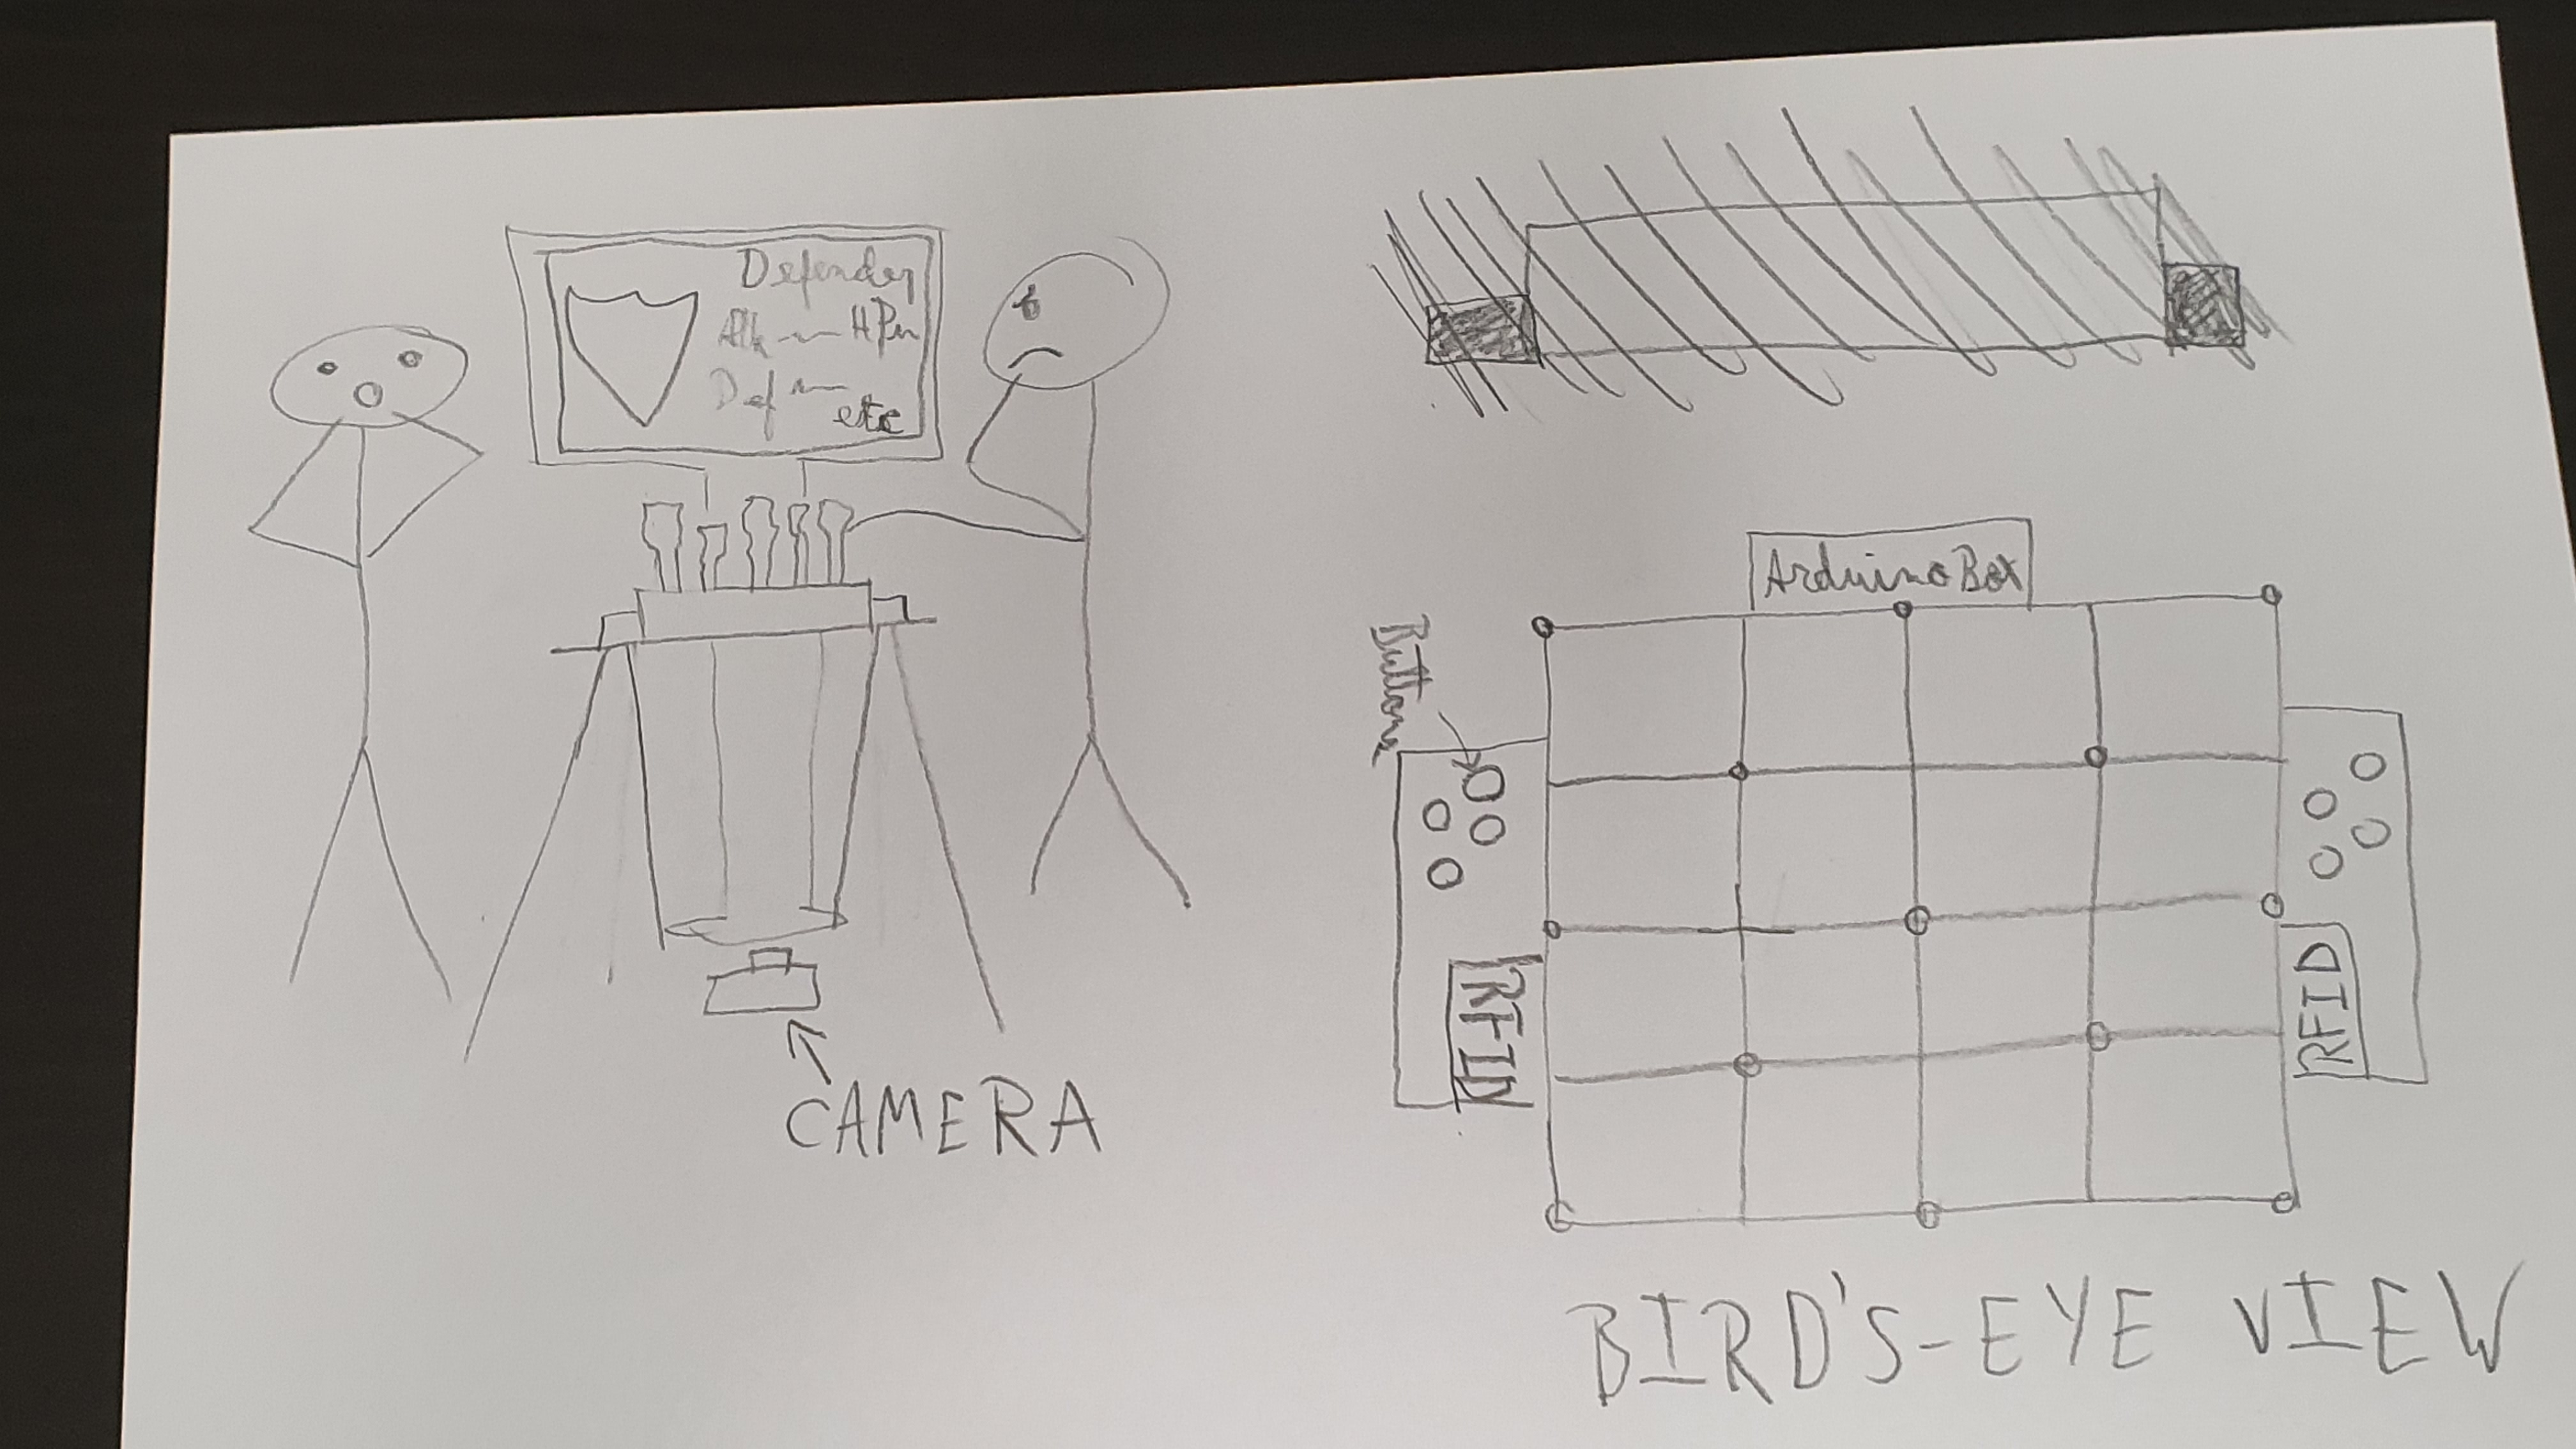 Defender
Atk HP
Def
etc
CAMERA
Arduino Box
Buttons
RFID
RFID
BIRD'S-EYE VIEW